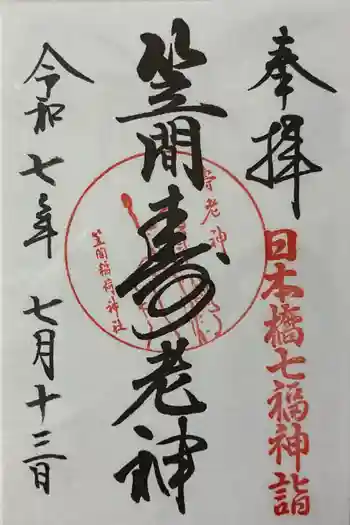 奉拝
日本橋七福神詣
笠間寿老神
寿老神
笠間稲荷神社
令和七年 七月十三日